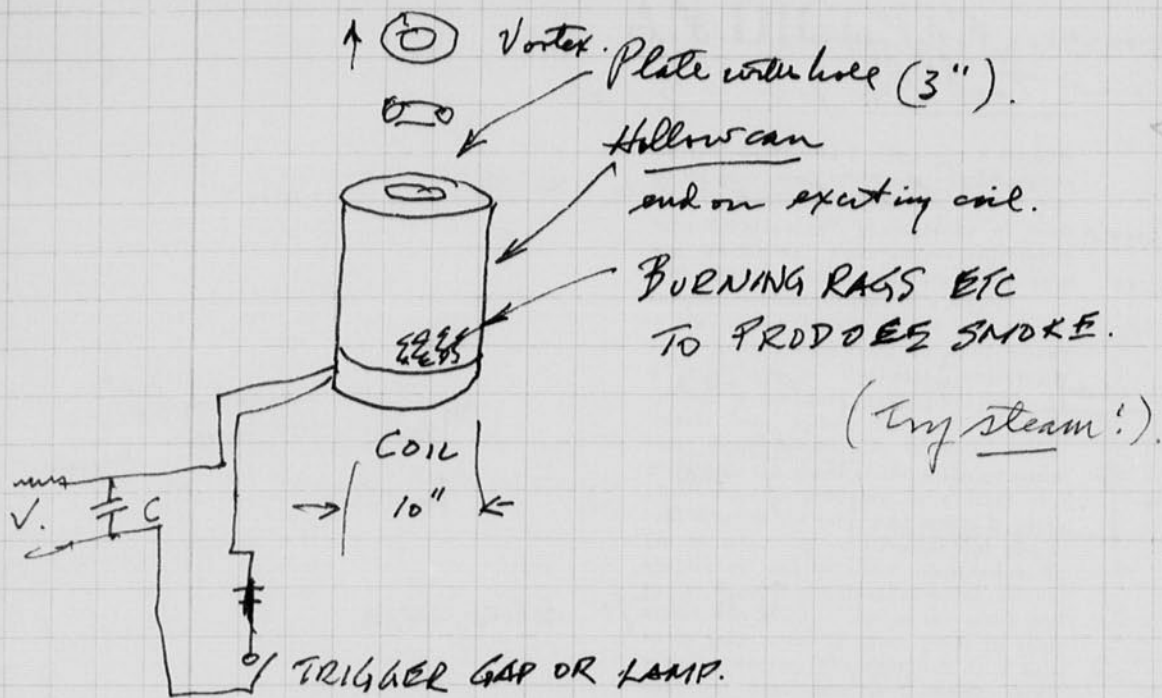 Vortex.
Plate with hole (3").
Hollow can
end on exciting coil.
BURNING RAGS ETC
TO PRODOEE SMOKE.
(Try steam!).
COIL
10"
V.
C
TRIGGER GAP OR LAMP.